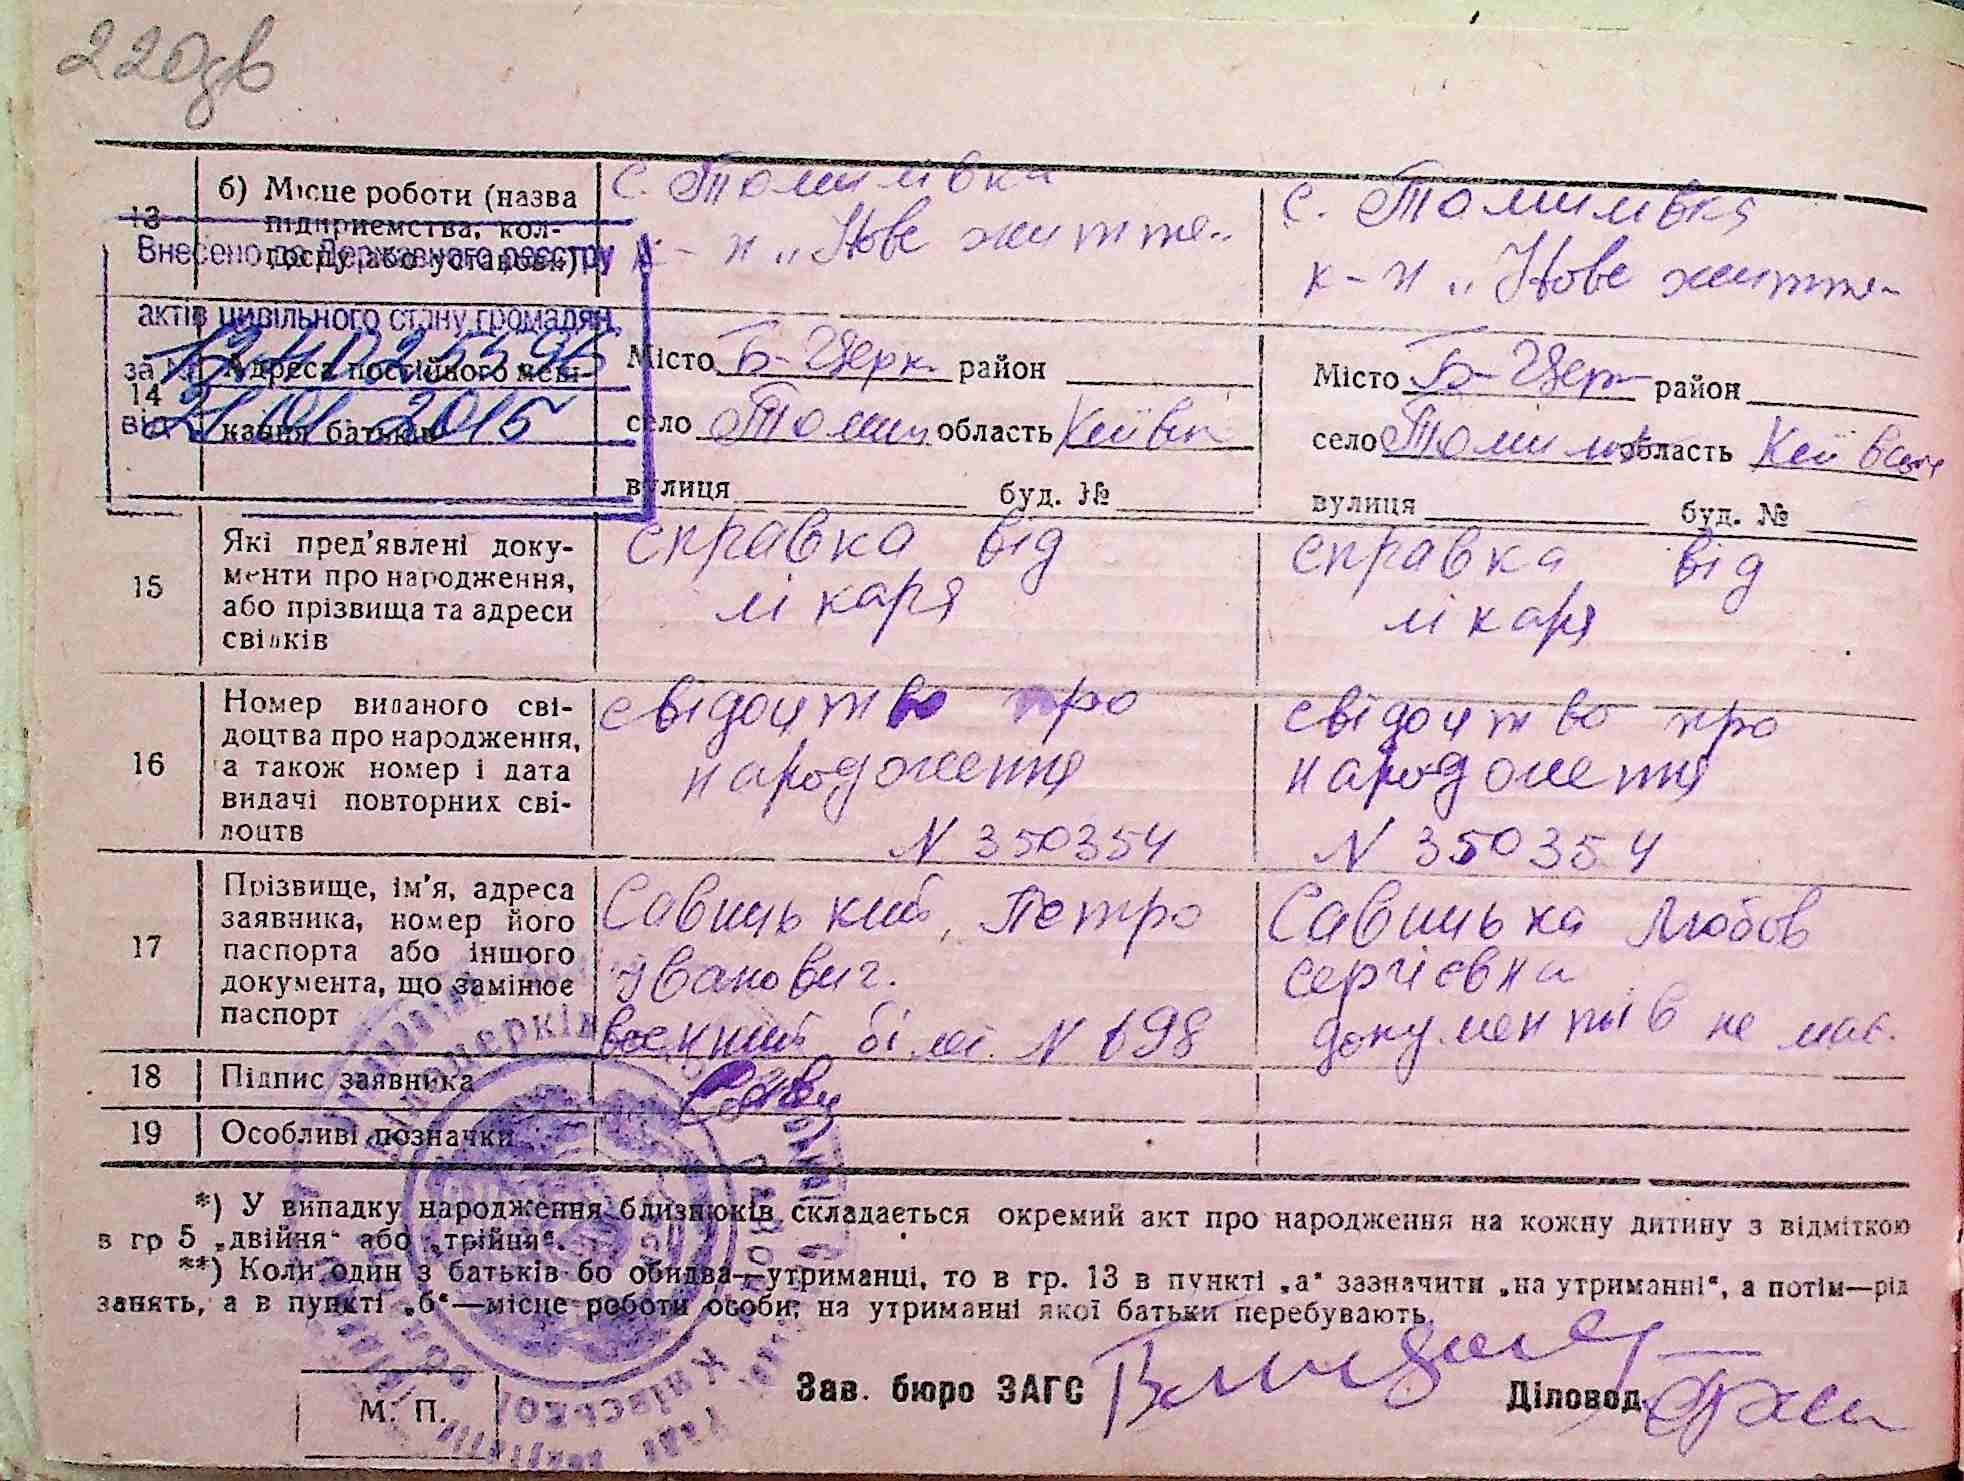 220зв
13
б) Місце роботи (назва підприємства, колгоспу або установи)
с. Томилівка
к-п „Нове життє"
с. Томилівка
к-п „Нове життє"
Внесено до Державного реєстру
актів цивільного стану громадян
за №
від 21 01 2015
14
Адреса постійного мешкання батьків
Місто Б-Церк район
село Томил область Київ
вулиця буд. №
Місто Б-Церк район
село Томилів область Київськ
вулиця буд. №
15
Які пред'явлені доку-
менти про народження,
або прізвища та адреси
свідків
справка від
лікаря
справка від
лікаря
16
Номер виданого сві-
доцтва про народження,
а також номер і дата
видачі повторних сві-
доцтв
свідоцтво про
народження
N 350354
свідоцтво про
народження
N 350354
17
Прізвище, ім'я, адреса
заявника, номер його
паспорта або іншого
документа, що замінює
паспорт
Савицький, Петро
Іванович.
военний біле. N 698
Савицька Любов
Сергієвна
документів не має.
18
Підпис заявника
19
Особливі позначки
*) У випадку народження близнюків складається окремий акт про народження на кожну дитину з відміткою
в гр 5 „двійня" або „трійня".
**) Коли один з батьків бо обидва—утриманці, то в гр. 13 в пункті „а" зазначити „на утриманні", а потім—рід
занять, а в пункті „б"—місце роботи особи, на утриманні якої батьки перебувають.
М. П.
Зав. бюро ЗАГС
Діловод